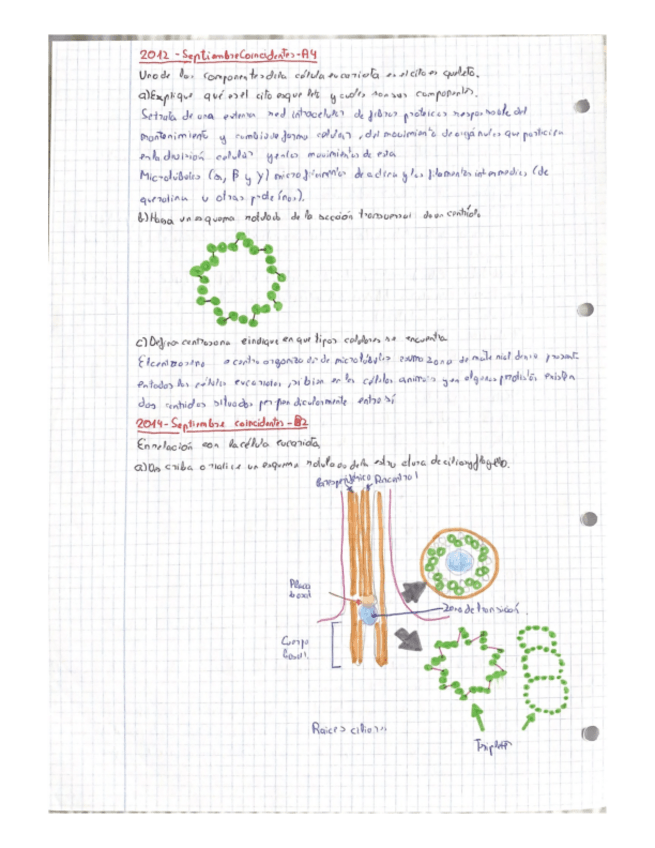 2012 - Septiembre Coincidentes - A4
Uno de los componentes de la célula eucariota es el citoesqueleto.
a) Explique qué es el citoesqueleto y cuáles son sus componentes.
Se trata de una extensa red intracelular de fibras proteicas responsable del
mantenimiento y cambio de forma celular, del movimiento de orgánulos que participa
en la división celular y en los movimientos de esta
Microtúbulos (α, β y γ) microfilamentos de actina y los filamentos intermedios (de
queratina u otras proteínas).
b) Haga un esquema rotulado de la sección transversal de un centríolo
c) Defina centrosoma e indique en que tipos celulares se encuentra
El centrosoma o centro organizador de microtúbulos zona de material denso presente
en todas las células eucariotas, si bien en las células animales y en algunos protistas existen
dos centriolos situados perpendicularmente entre sí
2014 - Septiembre coincidentes - B2
En relación con la célula eucariota,
a) Describa o realice un esquema rotulado de la estructura de cilios y flagelos.
Par periférico Par central
Placa
basal
Zona de transición.
Cuerpo
basal.
Raices ciliares
Triplete